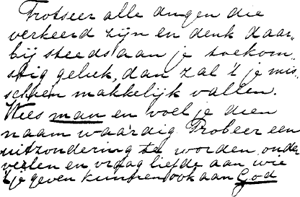 Trotseer alle dingen die
verkeerd zijn en denk daar
bij steeds aan je toekom-
stig geluk, dan zal 't je mis
schien makkelijk vallen.
Wees man en voel je dien
naam waardig Probeer een
uitzondering te worden onder
velen en vraag liefde aan wie
t je geven kunnen ook aan God